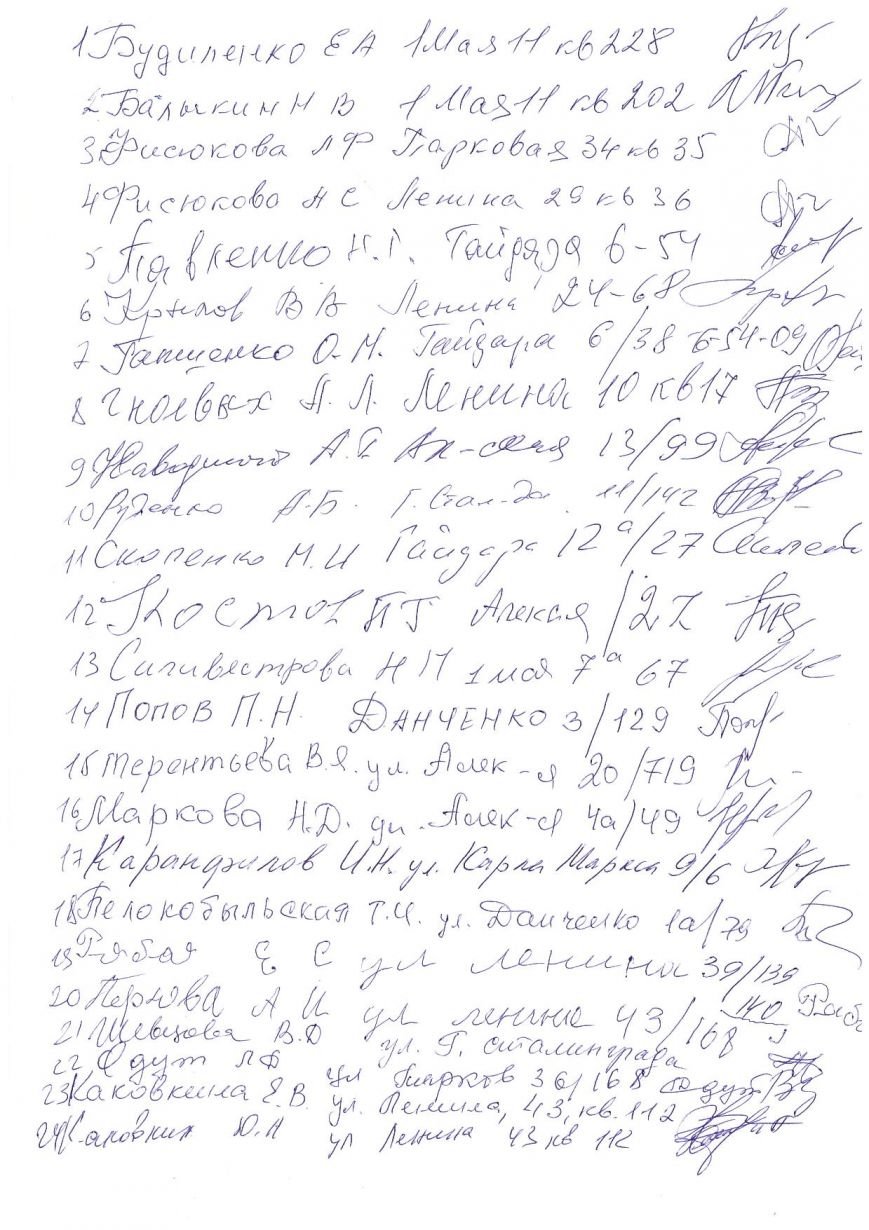 1 Будиленко Е А 1 Мая 11 кв 228
2 Балыкин Н В 1 Мая 11 кв 202
3 Фисюкова Л Ф Парковая 34 кв 35
4 Фисюкова Н С Ленина 29 кв 36
5 Павленко Н.Г. Гайдара 6-54
6 Крылов В А Ленина 24-68
7 Гапщенко О.М. Гайдара 6/38 6-54-09
8 Гноевых Л. Ленина 10 кв 17
9 А. 13/99
10 Руденко А.Б. Г. Стал-да 11/142
11 Скопенко М.И Гайдара 12а/27
12 Костов П Г /27
13 Силивестрова Н П 1 мая 7а 67
14 Попов П.Н. Данченко 3/129
15 Терентьева В.Я. ул. Алек-я 20/719
16 Маркова Н.Д. ул. Алек-я 4а/49
17 Карандилов И.Н. ул. Карла Маркса 9/6
18 Пелокобыльская Т.И. ул. Данченко 1а/79
19 Рябая Е С ул Ленина 39/139
20 А И ул Ленина 43/140
21 Шевцова В.Д ул. Г. Сталинграда 168
22 Одут Л Ф ул Парков 36/168
23 Каковкина Е.В. ул. Ленина, 43, кв. 112
24 Каковкин Ю.Н ул Ленина 43 кв 112